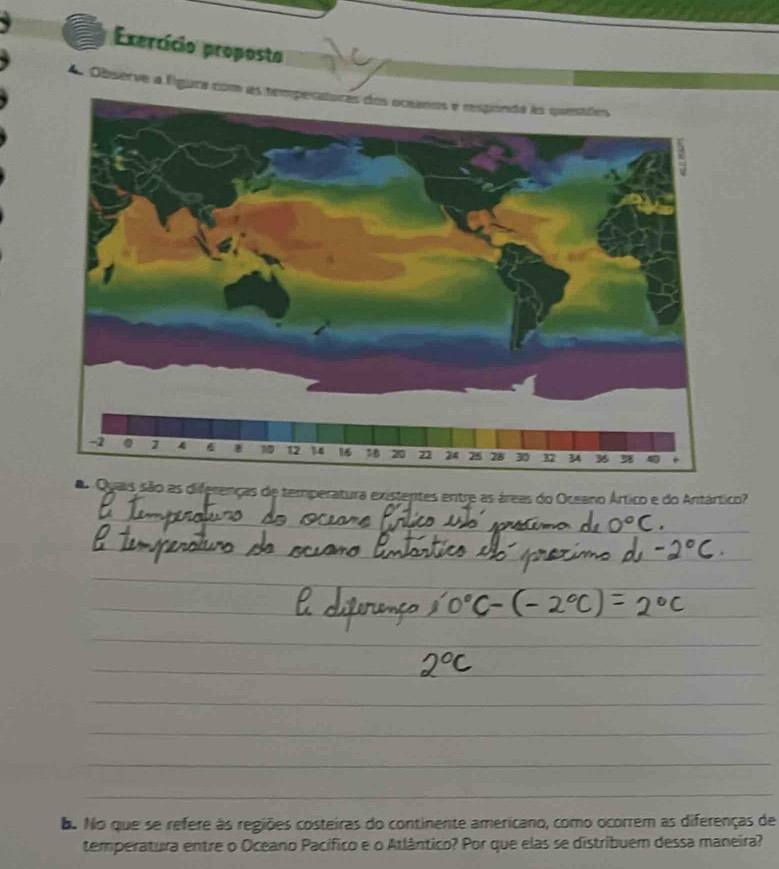 Exercício proposto
4. Observe a figura com as temperaturas dos oceanos e responda às questões.
-2 0 2 4 6 8 10 12 14 16 18 20 22 24 26 28 30 32 34 36 38 40 +
a. Quais são as diferenças de temperatura existentes entre as áreas do Oceano Ártico e do Antártico?
A temperatura do oceano Ártico está proxima de 0°C.
A temperatura do oceano Antártico está proximo de -2°C.
A diferença é 0°C-(-2°C)=2°C
2°C
b. No que se refere às regiões costeiras do continente americano, como ocorrem as diferenças de
temperatura entre o Oceano Pacífico e o Atlântico? Por que elas se distribuem dessa maneira?